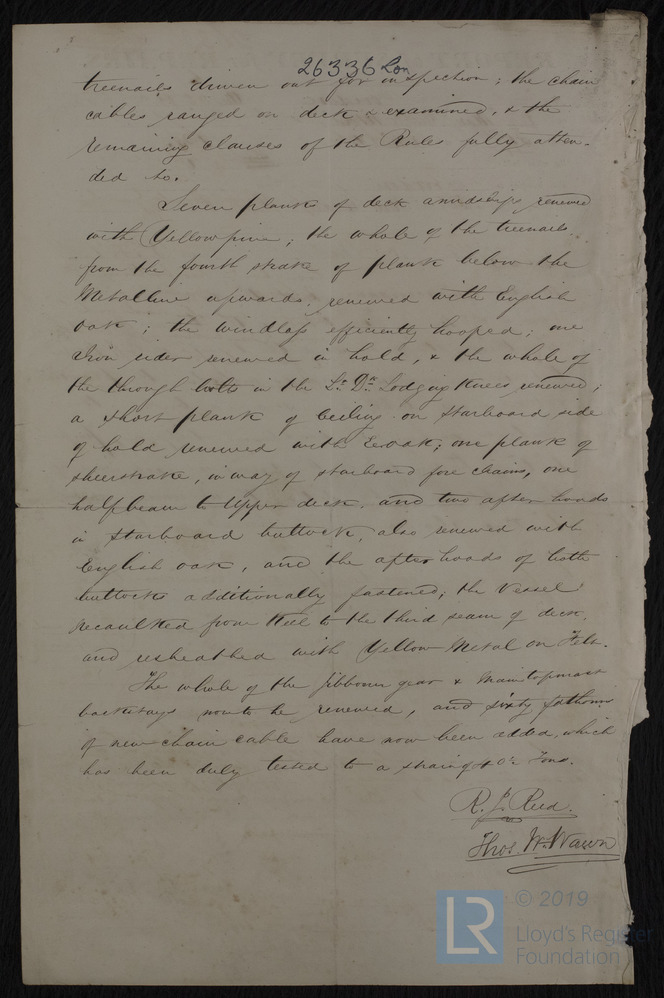 26336 Lon
treenails driven out for inspection; the chain
cables ranged on deck & examined, & the
remaining clauses of the Rules fully atten-
ded to.
Seven planks of deck amidships renewed
with Yellow pine; the whole of the treenails
from the fourth strake of plank below the
Metalline upwards renewed with English
oak; the windlass efficiently hooped; one
Iron rider renewed in hold, & the whole of
the through bolts in the Lr. Dk. Lodging Knees renewed;
a short plank of Ceiling on Starboard side
of hold renewed with oak; one plank of
sheerstrake, in way of starboard fore chains, one
half beam to Upper deck, and two after hoods
in Starboard buttock, also renewed with
English oak, and the after hoods of both
buttocks additionally fastened; the Vessel
recaulked from Keel to the third seam of deck
and resheathed with Yellow Metal on Felt.
The whole of the Jibboom gear & Maintopmast
backstays now to be renewed, and sixty fathoms
of new chain cable have now been added, which
has been duly tested to a strain of Tons.
R. J. Reed.
Thos. Wm. Wawn
© 2019
Lloyd's Register
Foundation
LR